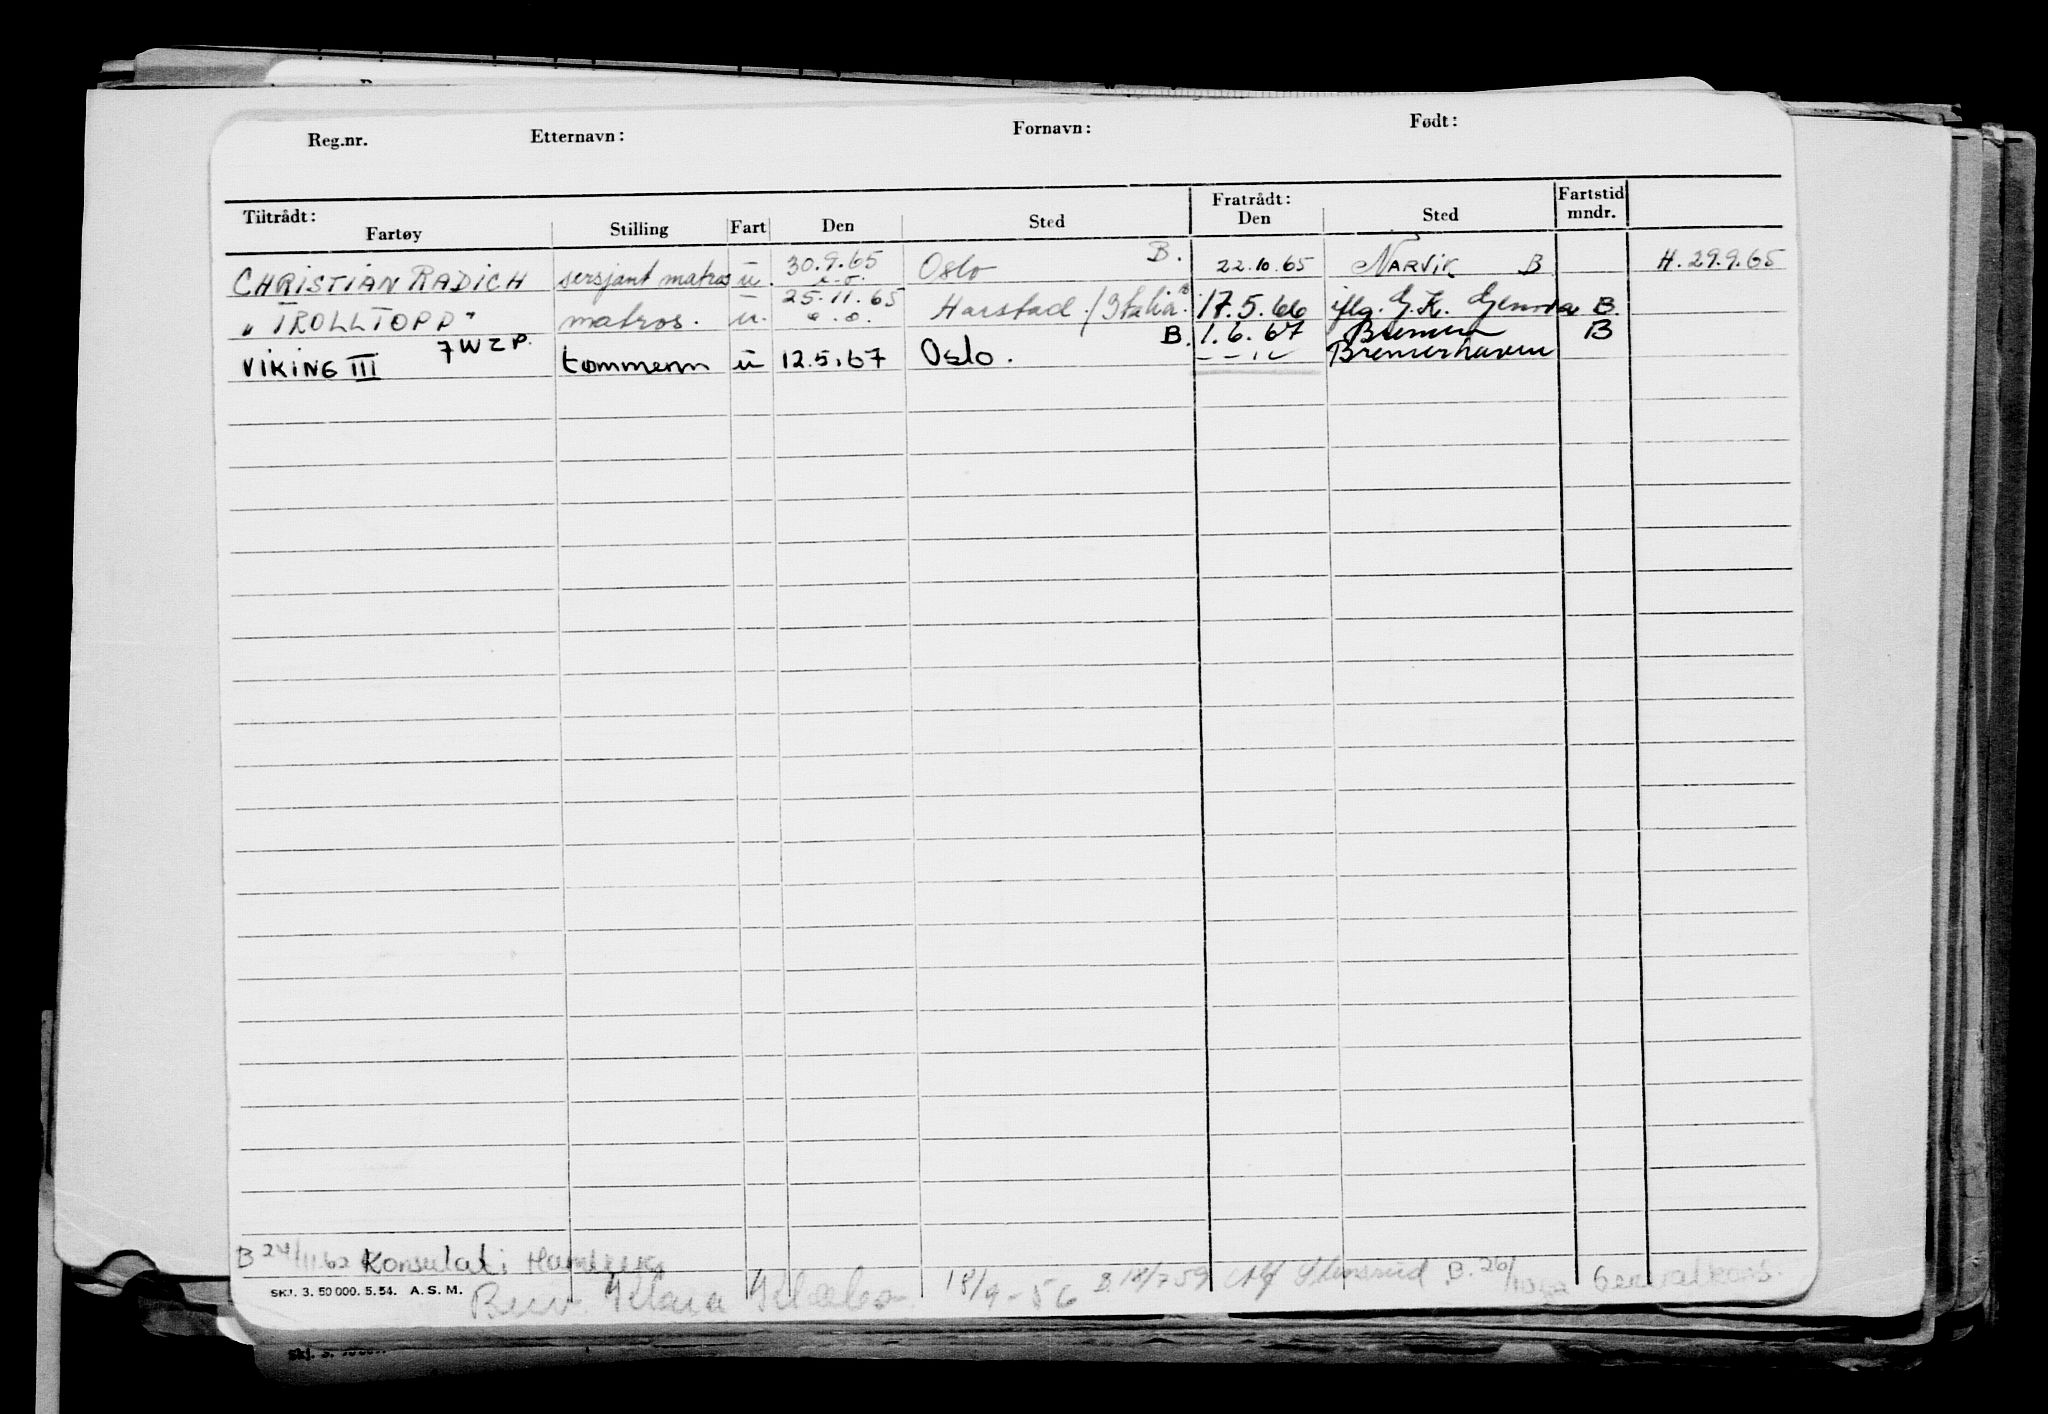 Reg.nr. Etternavn: Fornavn: Født:
Tiltrådt: Fratrådt: Fartstid
Fartøy Stilling Fart Den Sted Den Sted mndr.
CHRISTIAN RADICH sersjant matros u. 30.9.65 Oslo B. 22.10.65 NARVIK B H. 29.9.65
"TROLLTOPP" matros. u. 25.11.65 Harstad / Italia B 17.5.66 iflg. G.K. Genova B.
VIKING III 7WZP. tømmerm u 12.5.67 Oslo. B. 1.6.67 Bremen B
Bremerhaven
B 24/11.62 Konsulat i Hamburg
SKJ. 3. 50 000. 5. 54. A. S. M. Brev. Klara 18/9-56 B. 18/7 59 Stensrud B. 26/